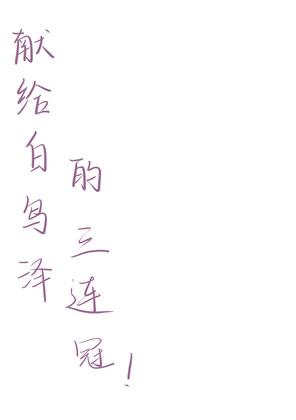 献给白鸟泽
的三连冠!